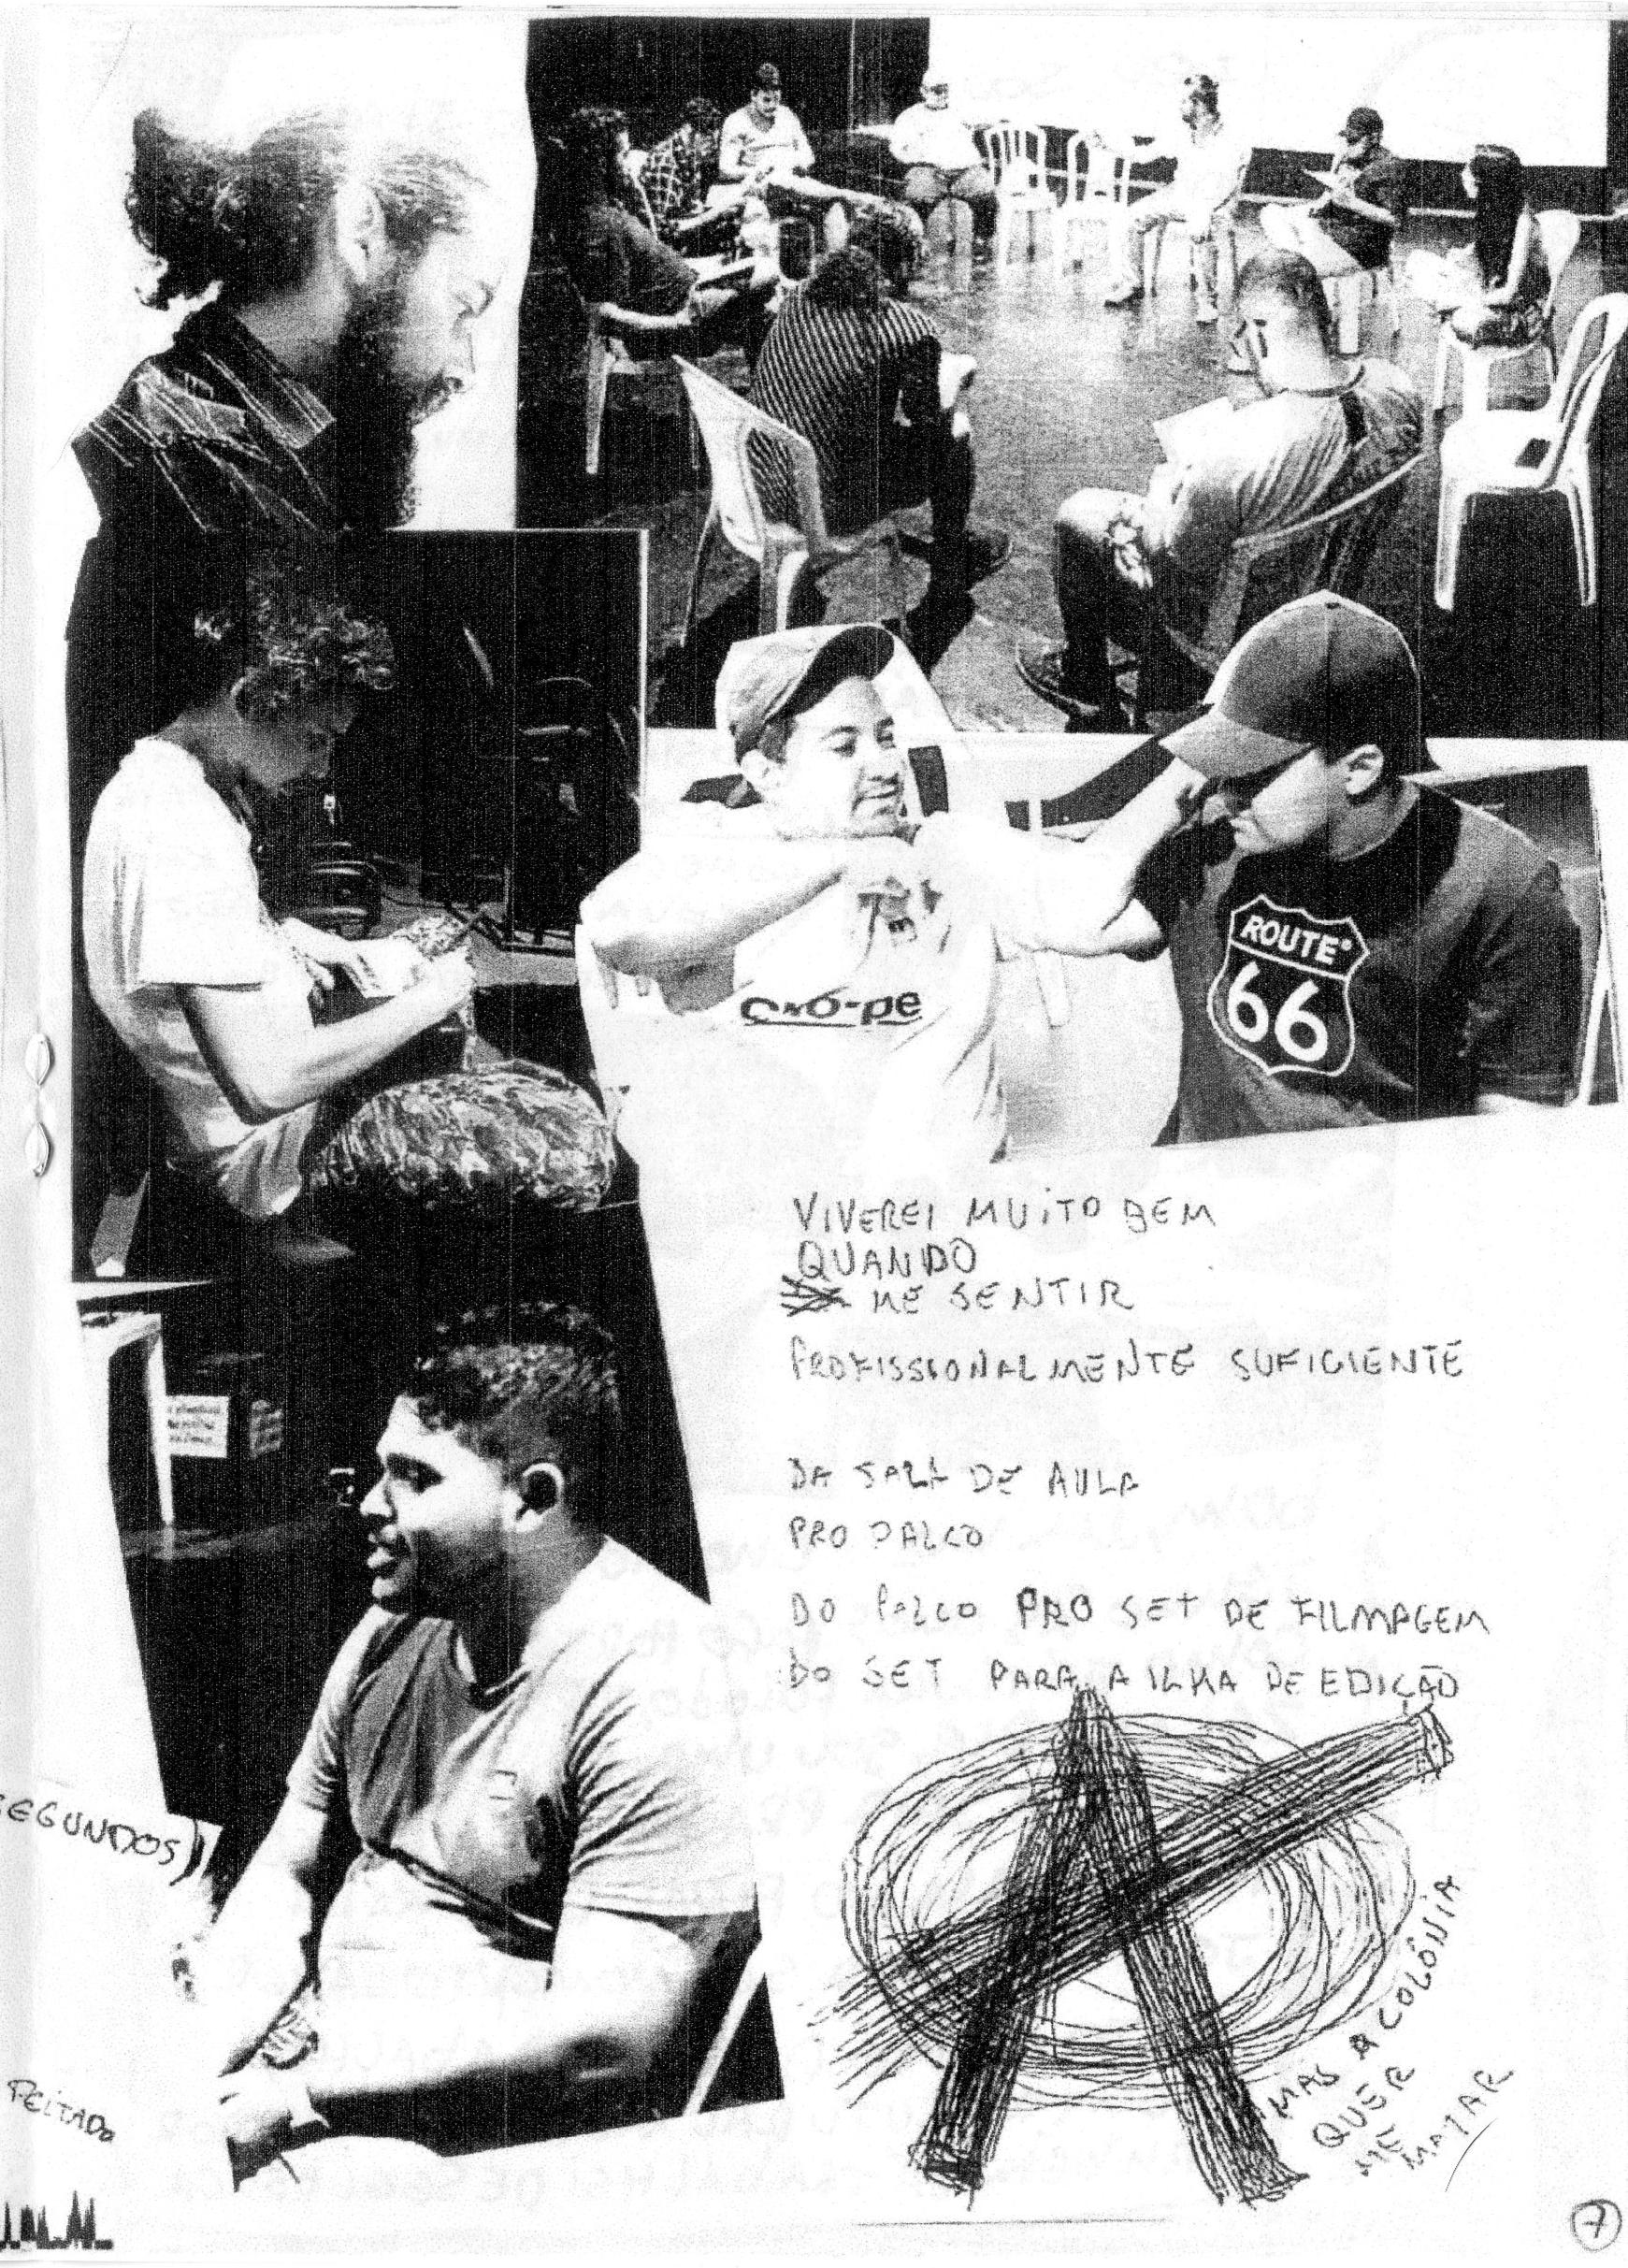 ROUTE
66
oxo-pe
VIVEREI MUITO BEM
QUANDO
ME SENTIR
PROFISSIONALMENTE SUFICIENTE
DA SALA DE AULA
PRO PALCO
DO PALCO PRO SET DE FILMAGEM
DO SET PARA A ILHA DE EDIÇÃO
SEGUNDOS)
MAS A COLÔNIA
QUER
ME
MATAR
PEITADO
7